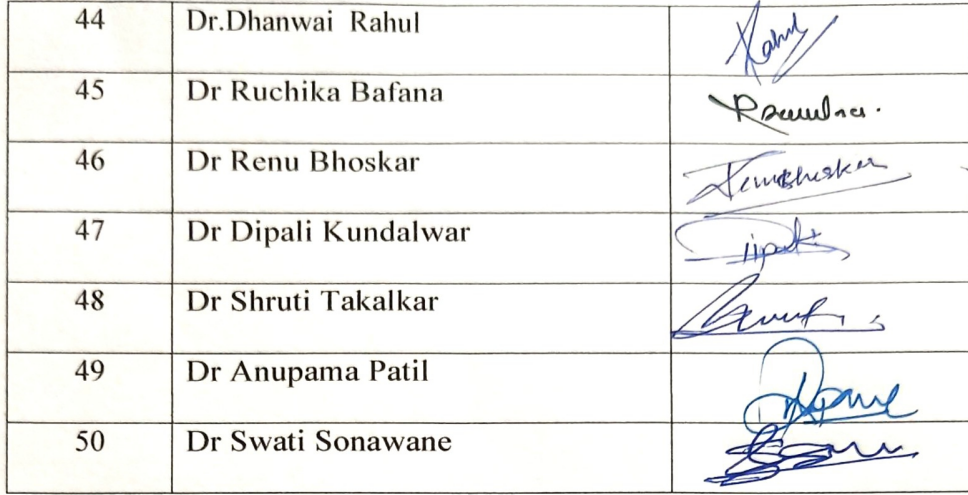 44 Dr.Dhanwai Rahul Rahul
45 Dr Ruchika Bafana
46 Dr Renu Bhoskar
47 Dr Dipali Kundalwar Dipali
48 Dr Shruti Takalkar
49 Dr Anupama Patil
50 Dr Swati Sonawane